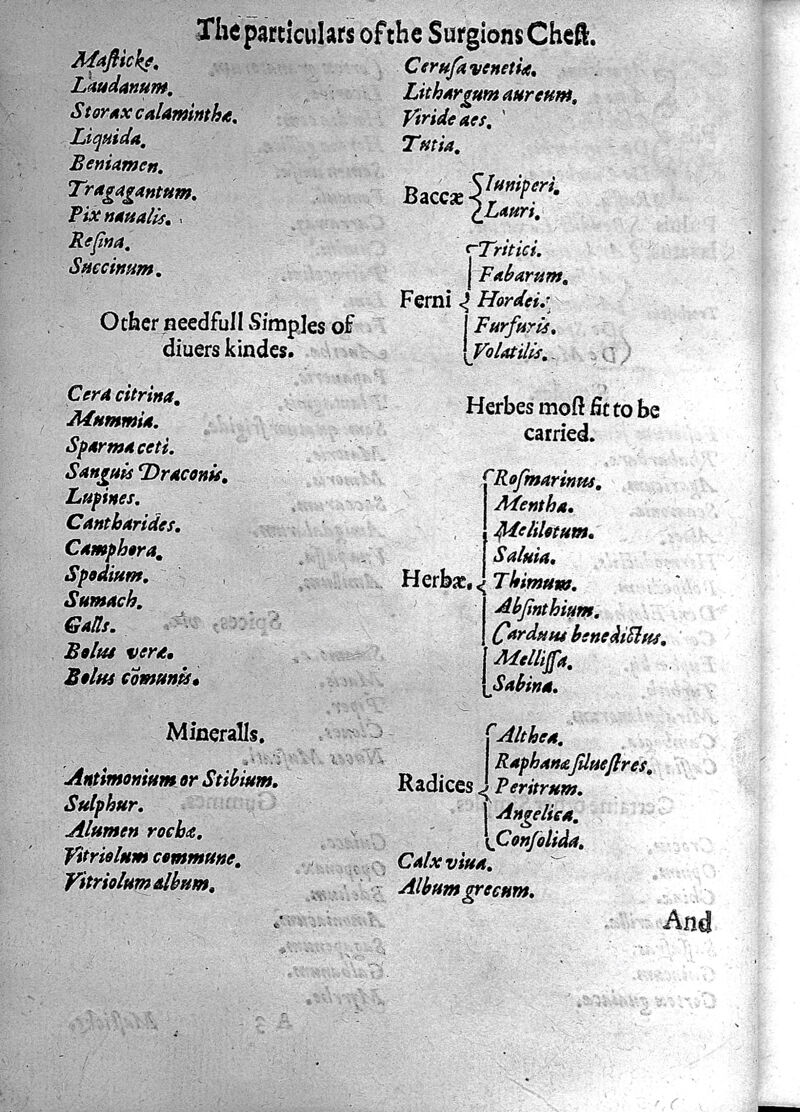 The particulars of the Surgions Cheſt.
Maſticke.
Laudanum.
Storax calaminthæ.
Liquida.
Beniamen.
Tragagantum.
Pix naualis.
Reſina.
Succinum.
Other needfull Simples of
diuers kindes.
Cera citrina.
Mummia.
Sparma ceti.
Sanguis Draconis.
Lupines.
Cantharides.
Camphora.
Spodium.
Sumach.
Galls.
Bolus veræ.
Bolus cõmunis.
Mineralls.
Antimonium or Stibium.
Sulphur.
Alumen rochæ.
Vitriolum commune.
Vitriolum album.
Ceruſa venetiæ.
Lithargum aureum.
Viride aes.
Tutia.
Baccæ
Iuniperi.
Lauri.
Ferni
Tritici.
Fabarum.
Hordei.
Furfuris.
Volatilis.
Herbes moſt fit to be
carried.
Herbæ.
Roſmarinus.
Mentha.
Melilotum.
Saluia.
Thimum.
Abſinthium.
Carduus benedictus.
Melliſſa.
Sabina.
Radices
Althea.
Raphanæ ſilueſtres.
Peritrum.
Angelica.
Conſolida.
Calx viua.
Album grecum.
And